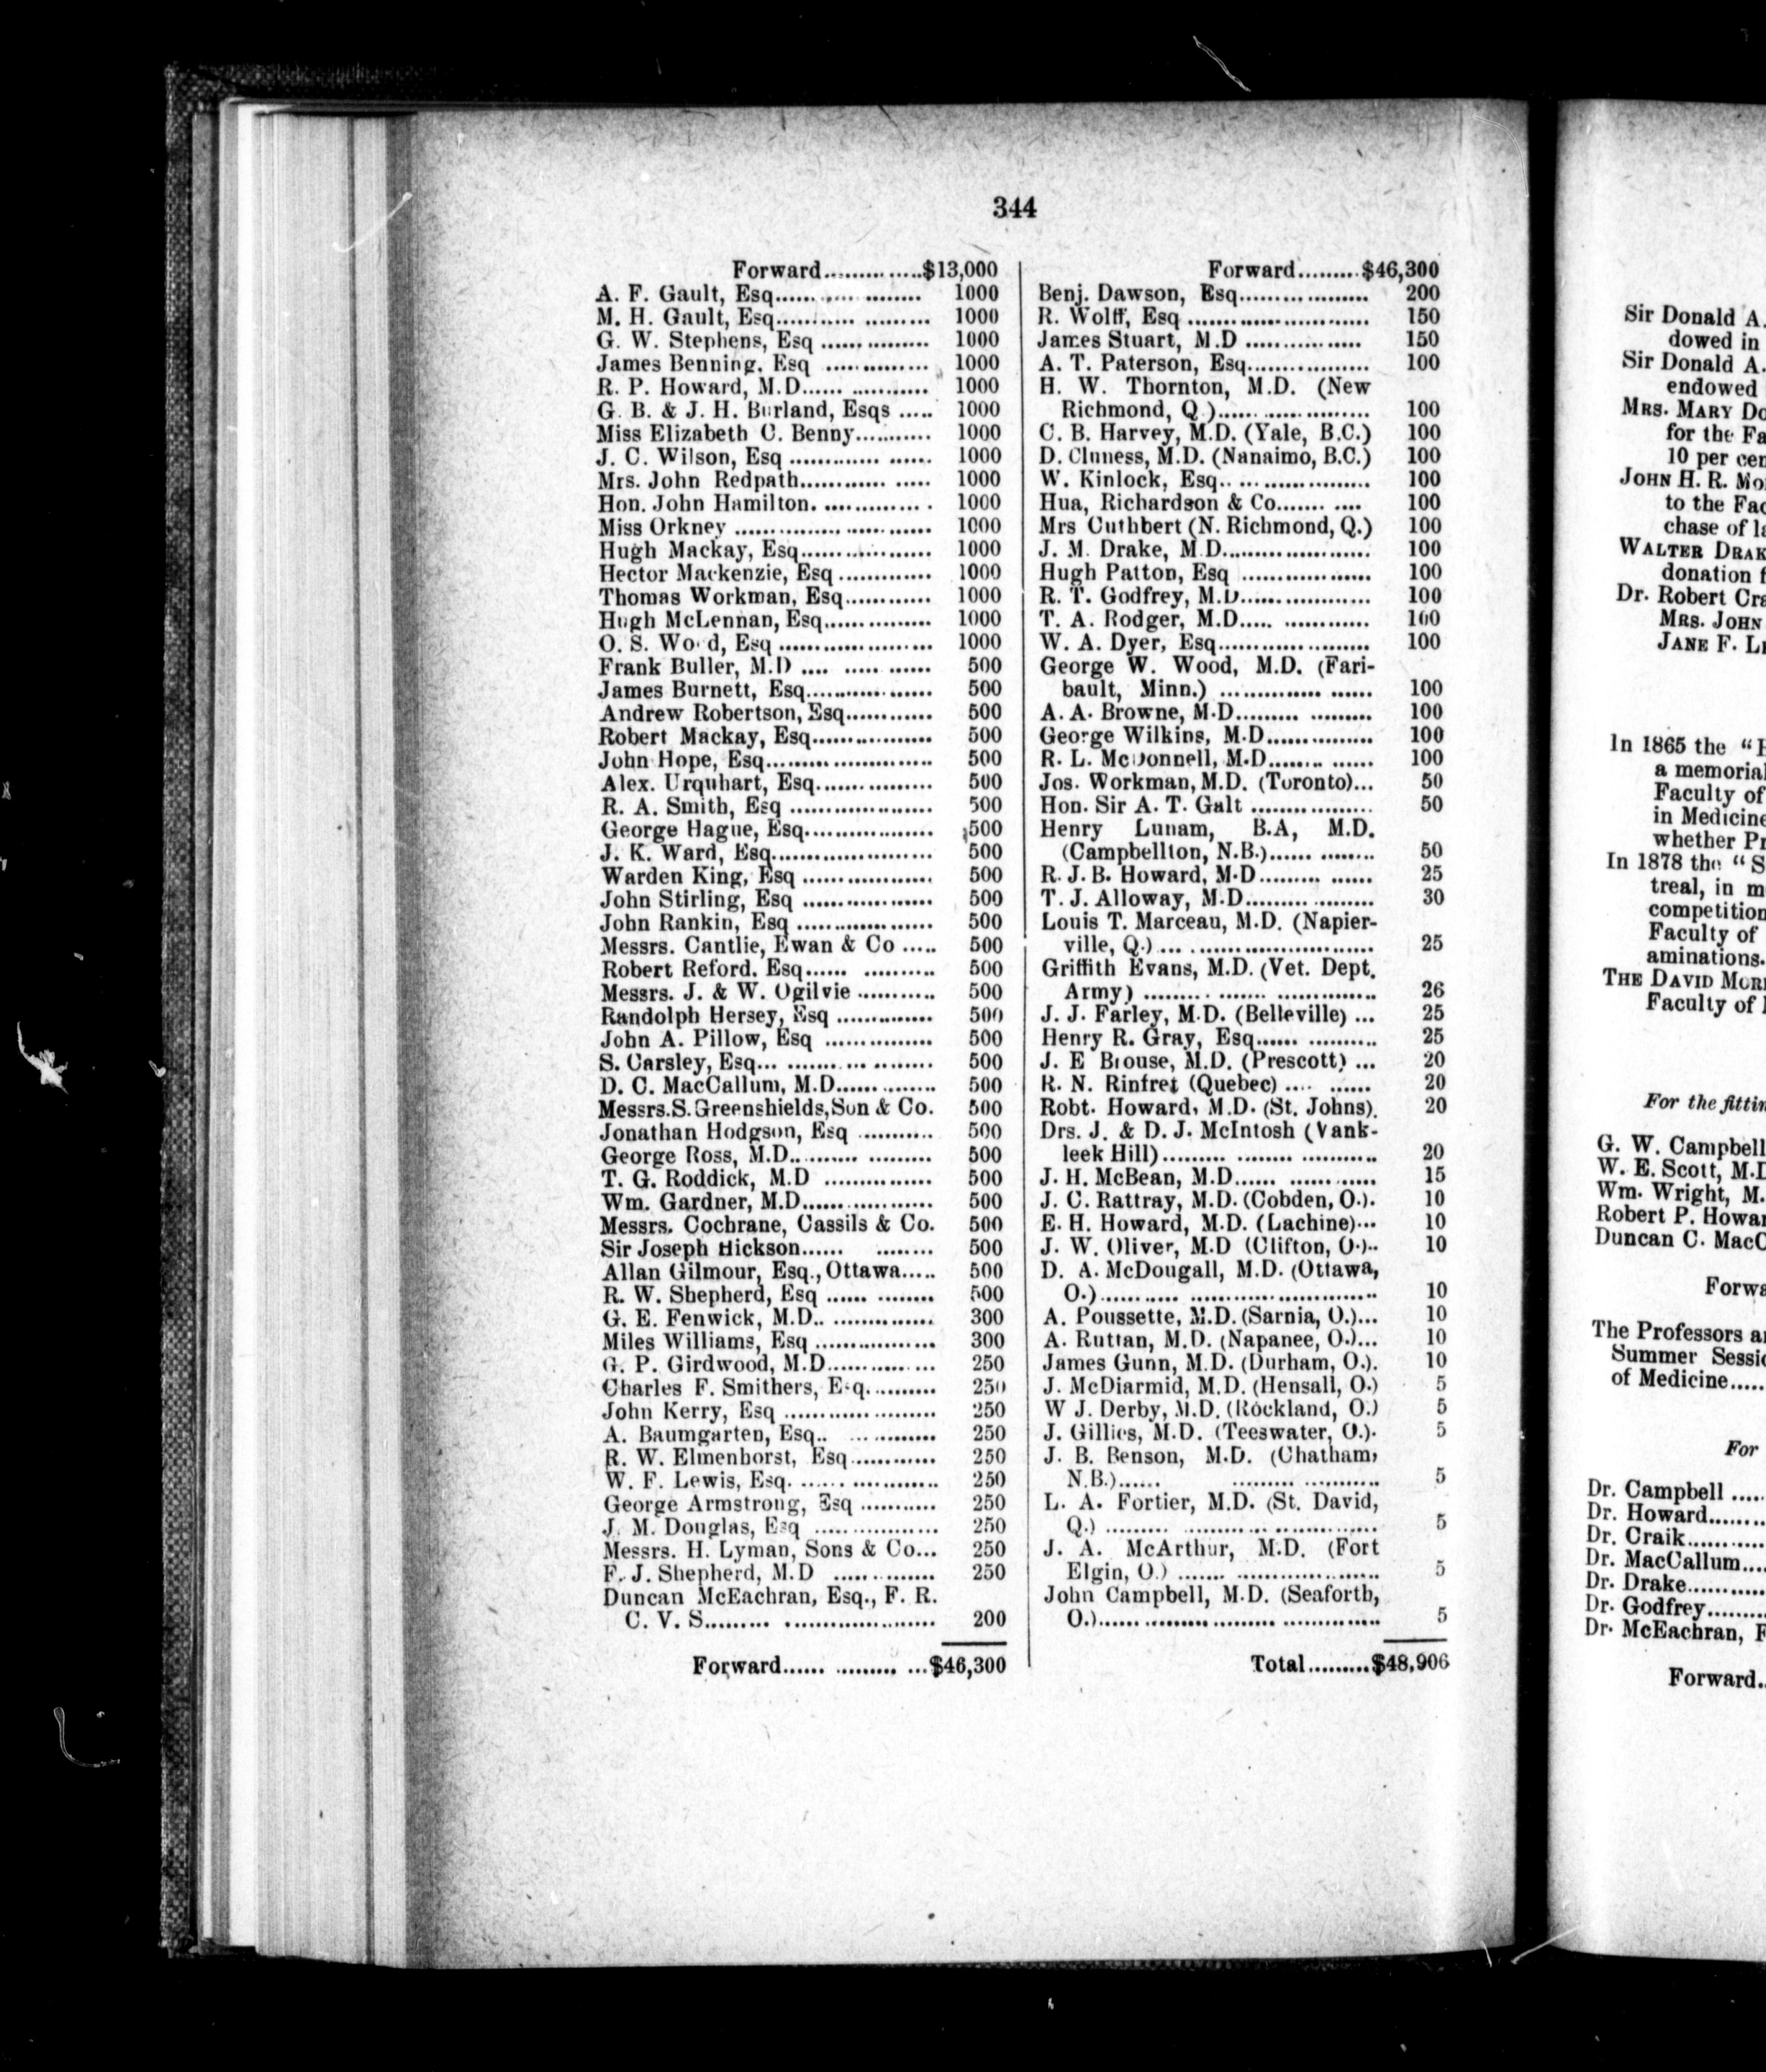 344
Forward.............$13,000
A. F. Gault, Esq.................... 1000
M. H. Gault, Esq.................... 1000
G. W. Stephens, Esq ................ 1000
James Benning, Esq ............... 1000
R. P. Howard, M.D.................. 1000
G. B. & J. H. Burland, Esqs ..... 1000
Miss Elizabeth C. Benny........... 1000
J. C. Wilson, Esq ................... 1000
Mrs. John Redpath................. 1000
Hon. John Hamilton. .............. 1000
Miss Orkney .......................... 1000
Hugh Mackay, Esq................... 1000
Hector Mackenzie, Esq ............. 1000
Thomas Workman, Esq............ 1000
Hugh McLennan, Esq............... 1000
O. S. Wood, Esq ...................... 1000
Frank Buller, M.D .... ..... ...... 500
James Burnett, Esq.................. 500
Andrew Robertson, Esq............ 500
Robert Mackay, Esq................. 500
John Hope, Esq........................ 500
Alex. Urquhart, Esq................ 500
R. A. Smith, Esq .................... 500
George Hague, Esq.................. 500
J. K. Ward, Esq....................... 500
Warden King, Esq .................. 500
John Stirling, Esq ................... 500
John Rankin, Esq .................... 500
Messrs. Cantlie, Ewan & Co ..... 500
Robert Reford, Esq...... .......... 500
Messrs. J. & W. Ogilvie ........... 500
Randolph Hersey, Esq .............. 500
John A. Pillow, Esq ................ 500
S. Carsley, Esq... ..................... 500
D. C. MacCallum, M.D.............. 500
Messrs. S. Greenshields, Son & Co. 500
Jonathan Hodgson, Esq ........... 500
George Ross, M.D.................... 500
T. G. Roddick, M.D ................ 500
Wm. Gardner, M.D................... 500
Messrs. Cochrane, Cassils & Co. 500
Sir Joseph Hickson...... ........ 500
Allan Gilmour, Esq., Ottawa..... 500
R. W. Shepherd, Esq ...... ........ 500
G. E. Fenwick, M.D.. .............. 300
Miles Williams, Esq ................. 300
G. P. Girdwood, M.D............ ... 250
Charles F. Smithers, Esq.......... 250
John Kerry, Esq ..................... 250
A. Baumgarten, Esq.. ............. 250
R. W. Elmenhorst, Esq............ 250
W. F. Lewis, Esq. .................... 250
George Armstrong, Esq ........... 250
J. M. Douglas, Esq .................. 250
Messrs. H. Lyman, Sons & Co... 250
F. J. Shepherd, M.D ............... 250
Duncan McEachran, Esq., F. R.
C. V. S......... ..................... 200
Forward...... ......... ...$46,300
Forward.........$46,300
Benj. Dawson, Esq................... 200
R. Wolff, Esq .......................... 150
James Stuart, M.D ................. 150
A. T. Paterson, Esq.................. 100
H. W. Thornton, M.D. (New
Richmond, Q.)..................... 100
C. B. Harvey, M.D. (Yale, B.C.) 100
D. Cluness, M.D. (Nanaimo, B.C.) 100
W. Kinlock, Esq.. ................... 100
Hua, Richardson & Co....... .... 100
Mrs Cuthbert (N. Richmond, Q.) 100
J. M. Drake, M.D..................... 100
Hugh Patton, Esq ................... 100
R. T. Godfrey, M.D.................. 100
T. A. Rodger, M.D..... ............ 100
W. A. Dyer, Esq...................... 100
George W. Wood, M.D. (Fari-
bault, Minn.) .............. ...... 100
A. A. Browne, M.D......... ......... 100
George Wilkins, M.D............... 100
R. L. McDonnell, M.D........ ...... 100
Jos. Workman, M.D. (Toronto)... 50
Hon. Sir A. T. Galt .................. 50
Henry Lunam, B.A, M.D.
(Campbellton, N.B.)...... ........ 50
R. J. B. Howard, M.D......... ...... 25
T. J. Alloway, M.D......... ......... 30
Louis T. Marceau, M.D. (Napier-
ville, Q.).... ........................... 25
Griffith Evans, M.D. (Vet. Dept.
Army) .......... ....... .............. 26
J. J. Farley, M.D. (Belleville) ... 25
Henry R. Gray, Esq...... .......... 25
J. E Brouse, M.D. (Prescott) ... 20
R. N. Rinfret (Quebec) .... ...... 20
Robt. Howard, M.D. (St. Johns). 20
Drs. J. & D. J. McIntosh (Vank-
leek Hill)......... ........ ........... 20
J. H. McBean, M.D...... ............ 15
J. C. Rattray, M.D. (Cobden, O.). 10
E. H. Howard, M.D. (Lachine)... 10
J. W. Oliver, M.D (Clifton, O.).. 10
D. A. McDougall, M.D. (Ottawa,
O.)........... .......................... 10
A. Poussette, M.D. (Sarnia, O.)... 10
A. Ruttan, M.D. (Napanee, O.)... 10
James Gunn, M.D. (Durham, O.). 10
J. McDiarmid, M.D. (Hensall, O.) 5
W J. Derby, M.D. (Rockland, O.) 5
J. Gillies, M.D. (Teeswater, O.). 5
J. B. Benson, M.D. (Chatham,
N.B.)...... ......... ........... 5
L. A. Fortier, M.D. (St. David,
Q.) ......... ......................... 5
J. A. McArthur, M.D. (Fort
Elgin, O.) ....... ..................... 5
John Campbell, M.D. (Seaforth,
O.)...... ......... ........ ............. 5
Total.........$48,906
Sir Donald A.
dowed in
Sir Donald A.
endowed
MRS. MARY DO
for the Fa
10 per cen
JOHN H. R. MO
to the Fac
chase of la
WALTER DRAK
donation f
Dr. Robert Cra
MRS. JOHN
JANE F. LE
In 1865 the "H
a memorial
Faculty of
in Medicine
whether Pr
In 1878 the "S
treal, in m
competition
Faculty of
aminations.
THE DAVID MORR
Faculty of M
For the fittin
G. W. Campbell
W. E. Scott, M.D
Wm. Wright, M.
Robert P. Howar
Duncan C. MacC
Forwa
The Professors an
Summer Sessio
of Medicine.....
For
Dr. Campbell .....
Dr. Howard........
Dr. Craik............
Dr. MacCallum....
Dr. Drake...........
Dr. Godfrey........
Dr. McEachran, F
Forward..